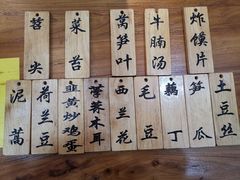 苕尖
菜苔
莴笋叶
牛腩汤
炸馍片
泥蒿
荷兰豆
韭黄炒鸡蛋
荸荠木耳
西兰花
毛豆
藕丁
笋瓜
土豆丝